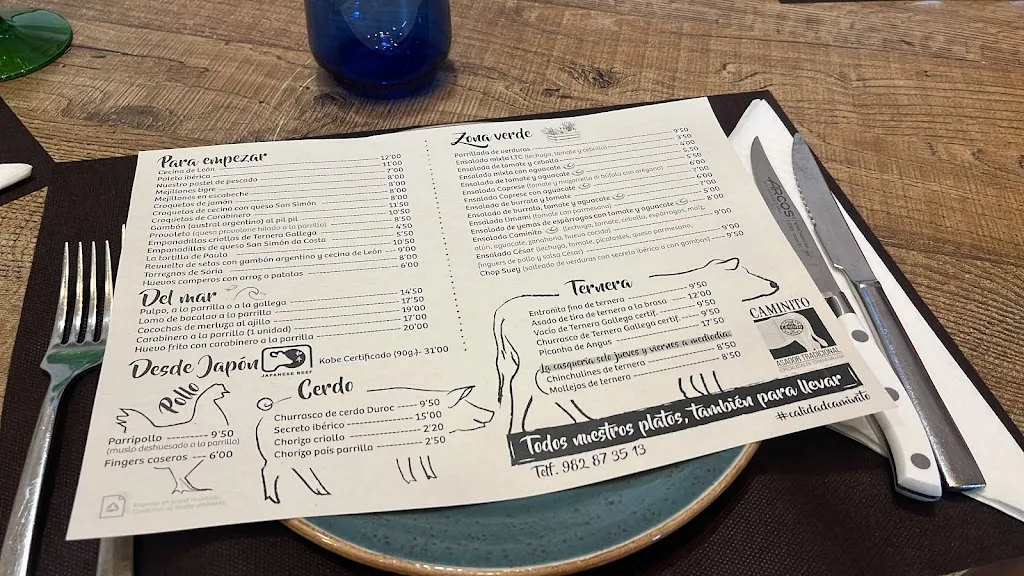 Para empezar
Cecina de León 12'00
Paleta ibérica 11'00
Nuestro pastel de pescado 7'00
Mejillones tigre 8'00
Mejillones en escabeche 8'00
Croquetas de jamón 8'00
Croquetas de cecina con queso San Simón 8'00
Croquetas de Carabinero
Gambón (austral argentino) al pil pil
Provoleta (queso provolone hilado a la parrilla)
Empanadillas criollas de Ternera Gallega
Empanadillas de queso San Simón da Costa
La tortilla de Paula
Revuelto de setas con gambón argentino y cecina de León
Torreznos de Soria 8'00
Huevos camperos con arroz o patatas 6'00
Del mar
Pulpo, a la parrilla o a la gallega 14'50
Lomo de bacalao a la parrilla 17'50
Cocochas de merluza al ajillo 19'00
Carabinero a la parrilla (1 unidad) 17'00
Huevo frito con carabinero a la parrilla 20'00
Desde Japón
JAPANESE BEEF
Kobe Certificado (90g.)- 31'00
Pollo
Parripollo ---------- 9'50
(muslo deshuesado a la parrilla)
Fingers caseros --- 6'00
Cerdo
Churrasco de cerdo Duroc --- 9'50
Secreto ibérico 15'00
Chorizo criollo 2'20
Chorizo país parrilla 2'50
Zona verde
Parrillada de verduras 9'50
Ensalada mixta LTC (lechuga, tomate y cebolla) 3'50
Ensalada de tomate y cebolla
Ensalada mixta con aguacate
Ensalada de tomate y aguacate
Ensalada Caprese (tomate y mozzarella di búfala con orégano)
Ensalada Caprese con aguacate
Ensalada de burrata y tomate
Ensalada de burrata, tomate y aguacate
Ensalada Umami (tomate con parmesano)
Ensalada de yemas de espárragos con tomate y aguacate 8'00
Ensalada Caminito (lechuga, tomate, cebolla, espárragos, maíz,
atún, aguacate, zanahoria, huevo cocido) 9'00
Ensalada César (lechuga, tomate, picatostes, queso parmesano,
finguers de pollo y salsa César) 9'00
Chop Suey (salteado de verduras con secreto ibérico o con gambas) 9'50
Ternera
Entraña fina de ternera 9'50
Asado de tira de ternera a la brasa 12'00
Vacío de Ternera Gallega certif. 9'50
Churrasco de Ternera Gallega certif. 9'50
Picanha de Angus 17'50
La casquería solo jueves y viernes a mediodía
Chinchulines de ternera 8'50
Mollejas de ternera 8'50
CAMINITO
ASADOR TRADICIONAL
Todos nuestros platos, también para llevar
Telf. 982 87 35 13
#calidadcaminito
ARCOS